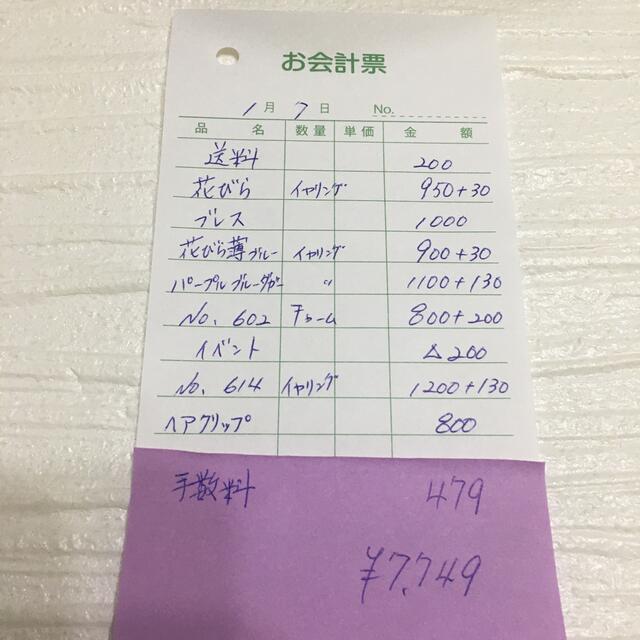 お会計票
1月7日 No.
品名 数量 単価 金額
送料 200
花びら イヤリング 950+30
ブレス 1000
花びら薄ブルー イヤリング 900+30
パープルブルーダガー 〃 1100+130
No. 602 チャーム 800+200
イベント △200
No. 614 イヤリング 1200+130
ヘアクリップ 800
手数料 479
¥7,749